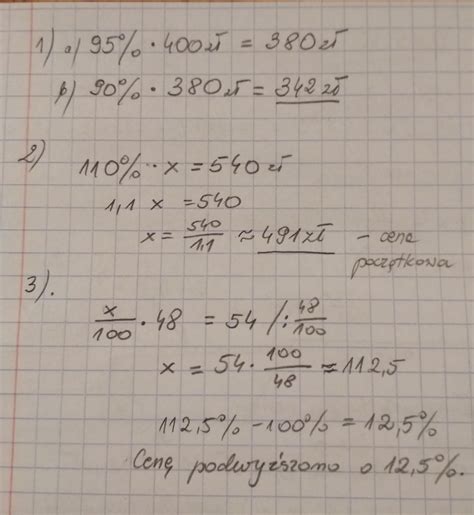 1) a) 95% · 400zł = 380zł
b) 90% · 380zł = 342zł
2)
110% · x = 540zł
1,1 x = 540
x = 540/1,1 ≈ 491zł – cena
początkowa
3).
x/100 · 48 = 54 /: 48/100
x = 54 · 100/48 = 112,5
112,5% - 100% = 12,5%
Cenę podwyższono o 12,5%.